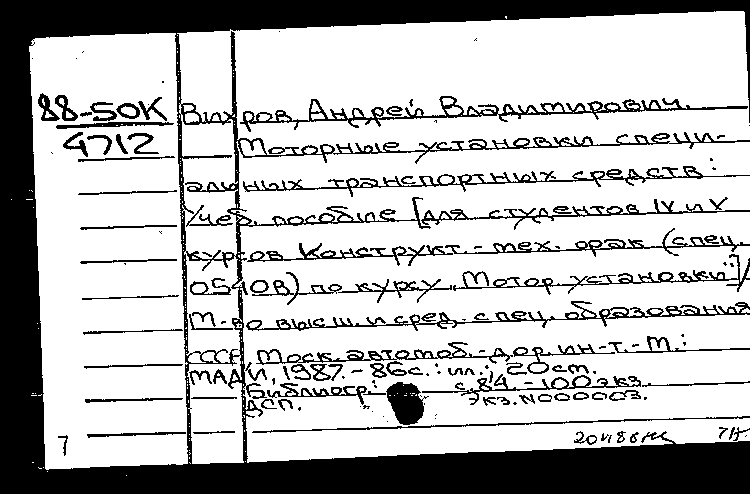 88-50К Вихров, Андрей Владимирович.
4712 Моторные установки специ-
альных транспортных средств:
Учеб. пособие [для студентов IV и V
курсов Конструкт.-мех. фак (спец.
0540В) по курсу „Мотор. установки"]/
М-во высш. и сред. спец. образования
СССР, Моск. автомоб.-дор. ин-т.-М.:
МАДИ, 1987.-86с.: ил.; 20см.
Библиогр.: с.84.-100экз.
ДСП. Экз.N000003.
7